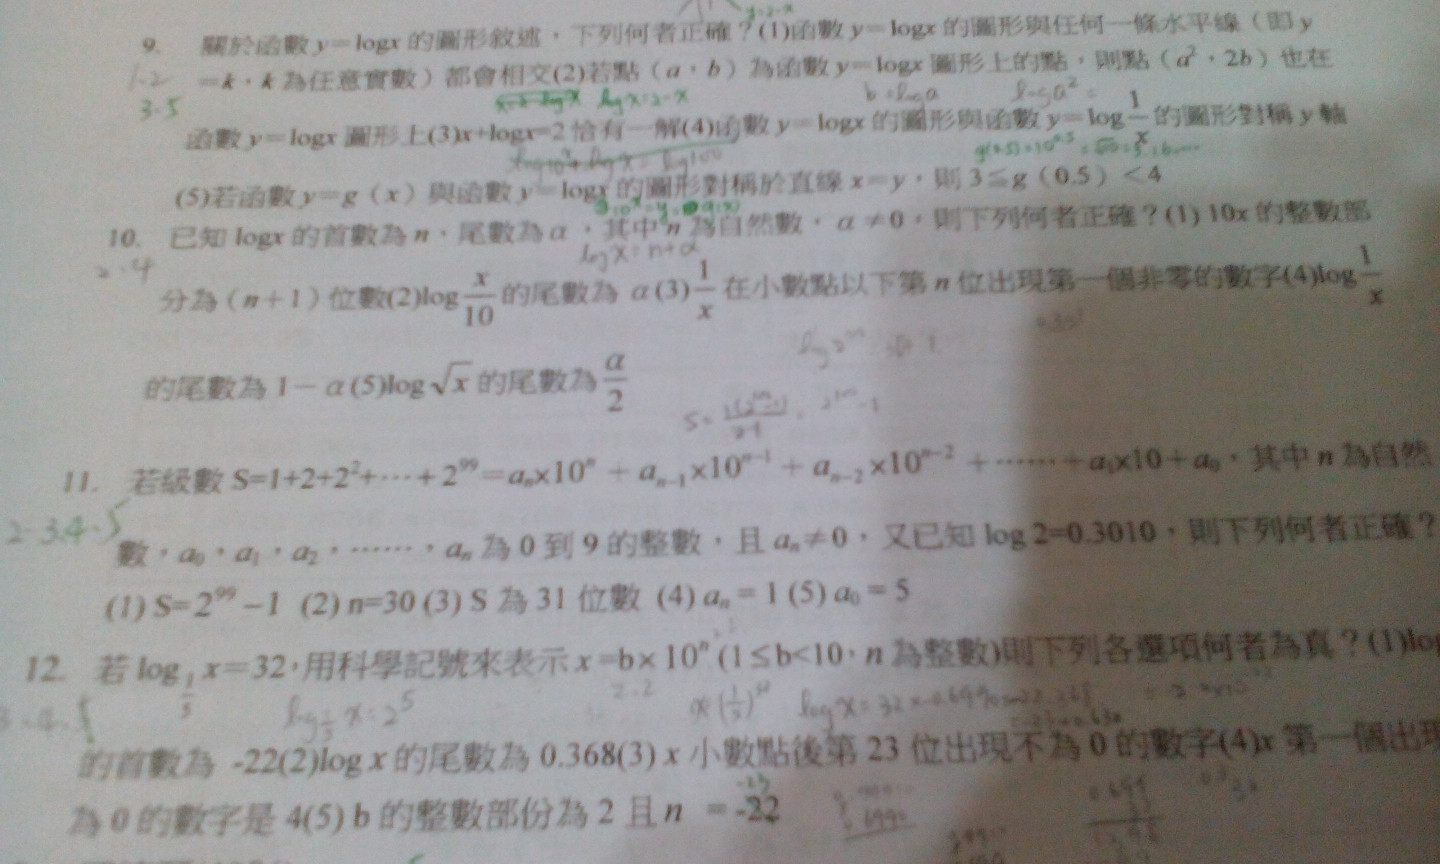 9. 關於函數 y=logx 的圖形敘述，下列何者正確？(1)函數 y=logx 的圖形與任何一條水平線（即 y
=k，k 為任意實數）都會相交(2)若點（a，b）為函數 y=logx 圖形上的點，則點（a²，2b）也在
函數 y=logx 圖形上(3)x+logx=2 恰有一解(4)函數 y=logx 的圖形與函數 y=log 1/x 的圖形對稱 y 軸
(5)若函數 y=g（x）與函數 y=logx 的圖形對稱於直線 x=y，則 3≦g（0.5）<4
3-5
b=loga
logx=2-x
10. 已知 logx 的首數為 n，尾數為 α，其中 n 為自然數，α≠0，則下列何者正確？(1) 10x 的整數部
logx=n+α
2.4
分為（n+1）位數(2)log x/10 的尾數為 α(3) 1/x 在小數點以下第 n 位出現第一個非零的數字(4)log 1/x
的尾數為 1-α(5)log √x 的尾數為 α/2
11. 若級數 S=1+2+2²+……+2⁹⁹=aₙ×10ⁿ+aₙ₋₁×10ⁿ⁻¹+aₙ₋₂×10ⁿ⁻²+……+a₁×10+a₀，其中 n 為自然
數，a₀，a₁，a₂，……，aₙ 為 0 到 9 的整數，且 aₙ≠0，又已知 log 2=0.3010，則下列何者正確？
(1) S=2⁹⁹-1 (2) n=30 (3) S 為 31 位數 (4) aₙ=1 (5) a₀=5
12. 若 log_{1/5} x=32，用科學記號來表示 x=b×10ⁿ (1≤b<10，n 為整數)則下列各選項何者為真？(1)lo
的首數為 -22(2)log x 的尾數為 0.368(3) x 小數點後第 23 位出現不為 0 的數字(4)x 第一個出現
為 0 的數字是 4(5) b 的整數部份為 2 且 n = -22